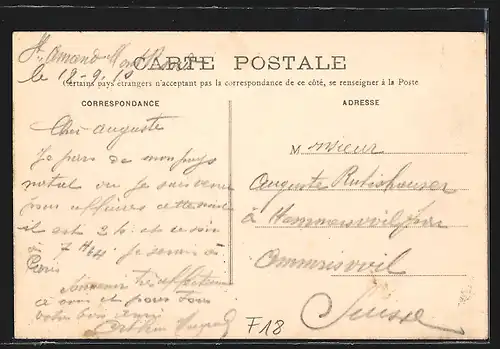 St Amand Mont Rond
le 18-9-10
CARTE POSTALE
Certains pays étrangers n'acceptant pas la correspondance de ce côté, se renseigner à la Poste
CORRESPONDANCE
ADRESSE
Cher Auguste
Je pars de mon pays
natal ou je suis venu
pour affaires
il est 2 h et ce soir
à 7 H je serai à
Paris
Souvenir
a vous et pour tous
votre bon ami
Arthur
M onsieur
Auguste Rutishauser
à Hemmerswil par
Amriswil
Suisse
F18